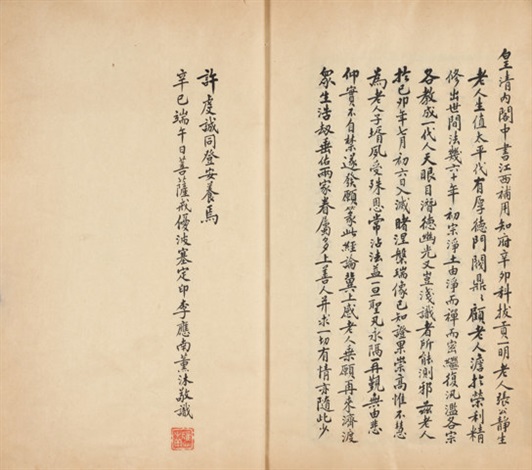 皇清內閣中書江西補用知府辛卯科拔貢一明老人張公靜生
老人生值太平代有厚德門閥鼎鼎顧老人澹於榮利精
修出世間法幾六十年初宗淨土由淨而禪而密繼復汎濫各宗
各教成一代人天眼目潛德幽光又豈淺識者所能測邪茲老人
於己卯年七月初六日入滅睹涅槃瑞像已知證果崇高惟不慧
為老人子壻夙受殊恩常沾法益一旦聖凡永隔再覲無由悲
仰實不自禁遂發願篆此經論冀上感老人乘願再來濟渡
眾生浩劫垂佑兩家眷屬多上善人并求一切有情亦隨此少
許虔誠同登安養焉
辛巳端午日菩薩戒優波塞定印李應南薰沐敬識